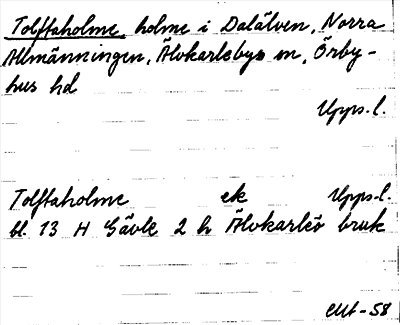 Tolftaholme, holme i Dalälven, Norra
Allmänningen, Älvkarleby sn, Örby-
hus hd
Upps. l.
Tolftaholme ek Upps. l.
bl. 13 H Gävle 2 h Älvkarleö bruk
-58